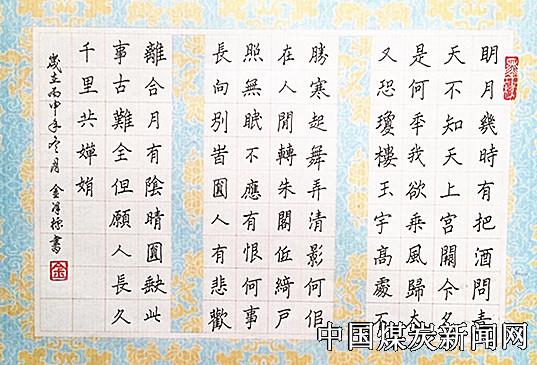 明月幾時有把酒問青
天不知天上宮闕今夕
是何年我欲乘風歸去
又恐瓊樓玉宇高處不
勝寒起舞弄清影何佀
在人間轉朱閣低綺戶
照無眠不應有恨何事
長向別時圓人有悲歡
離合月有陰晴圓缺此
事古難全但願人長久
千里共嬋娟
歲在丙申年冬月 金書
金
中国煤炭新闻网